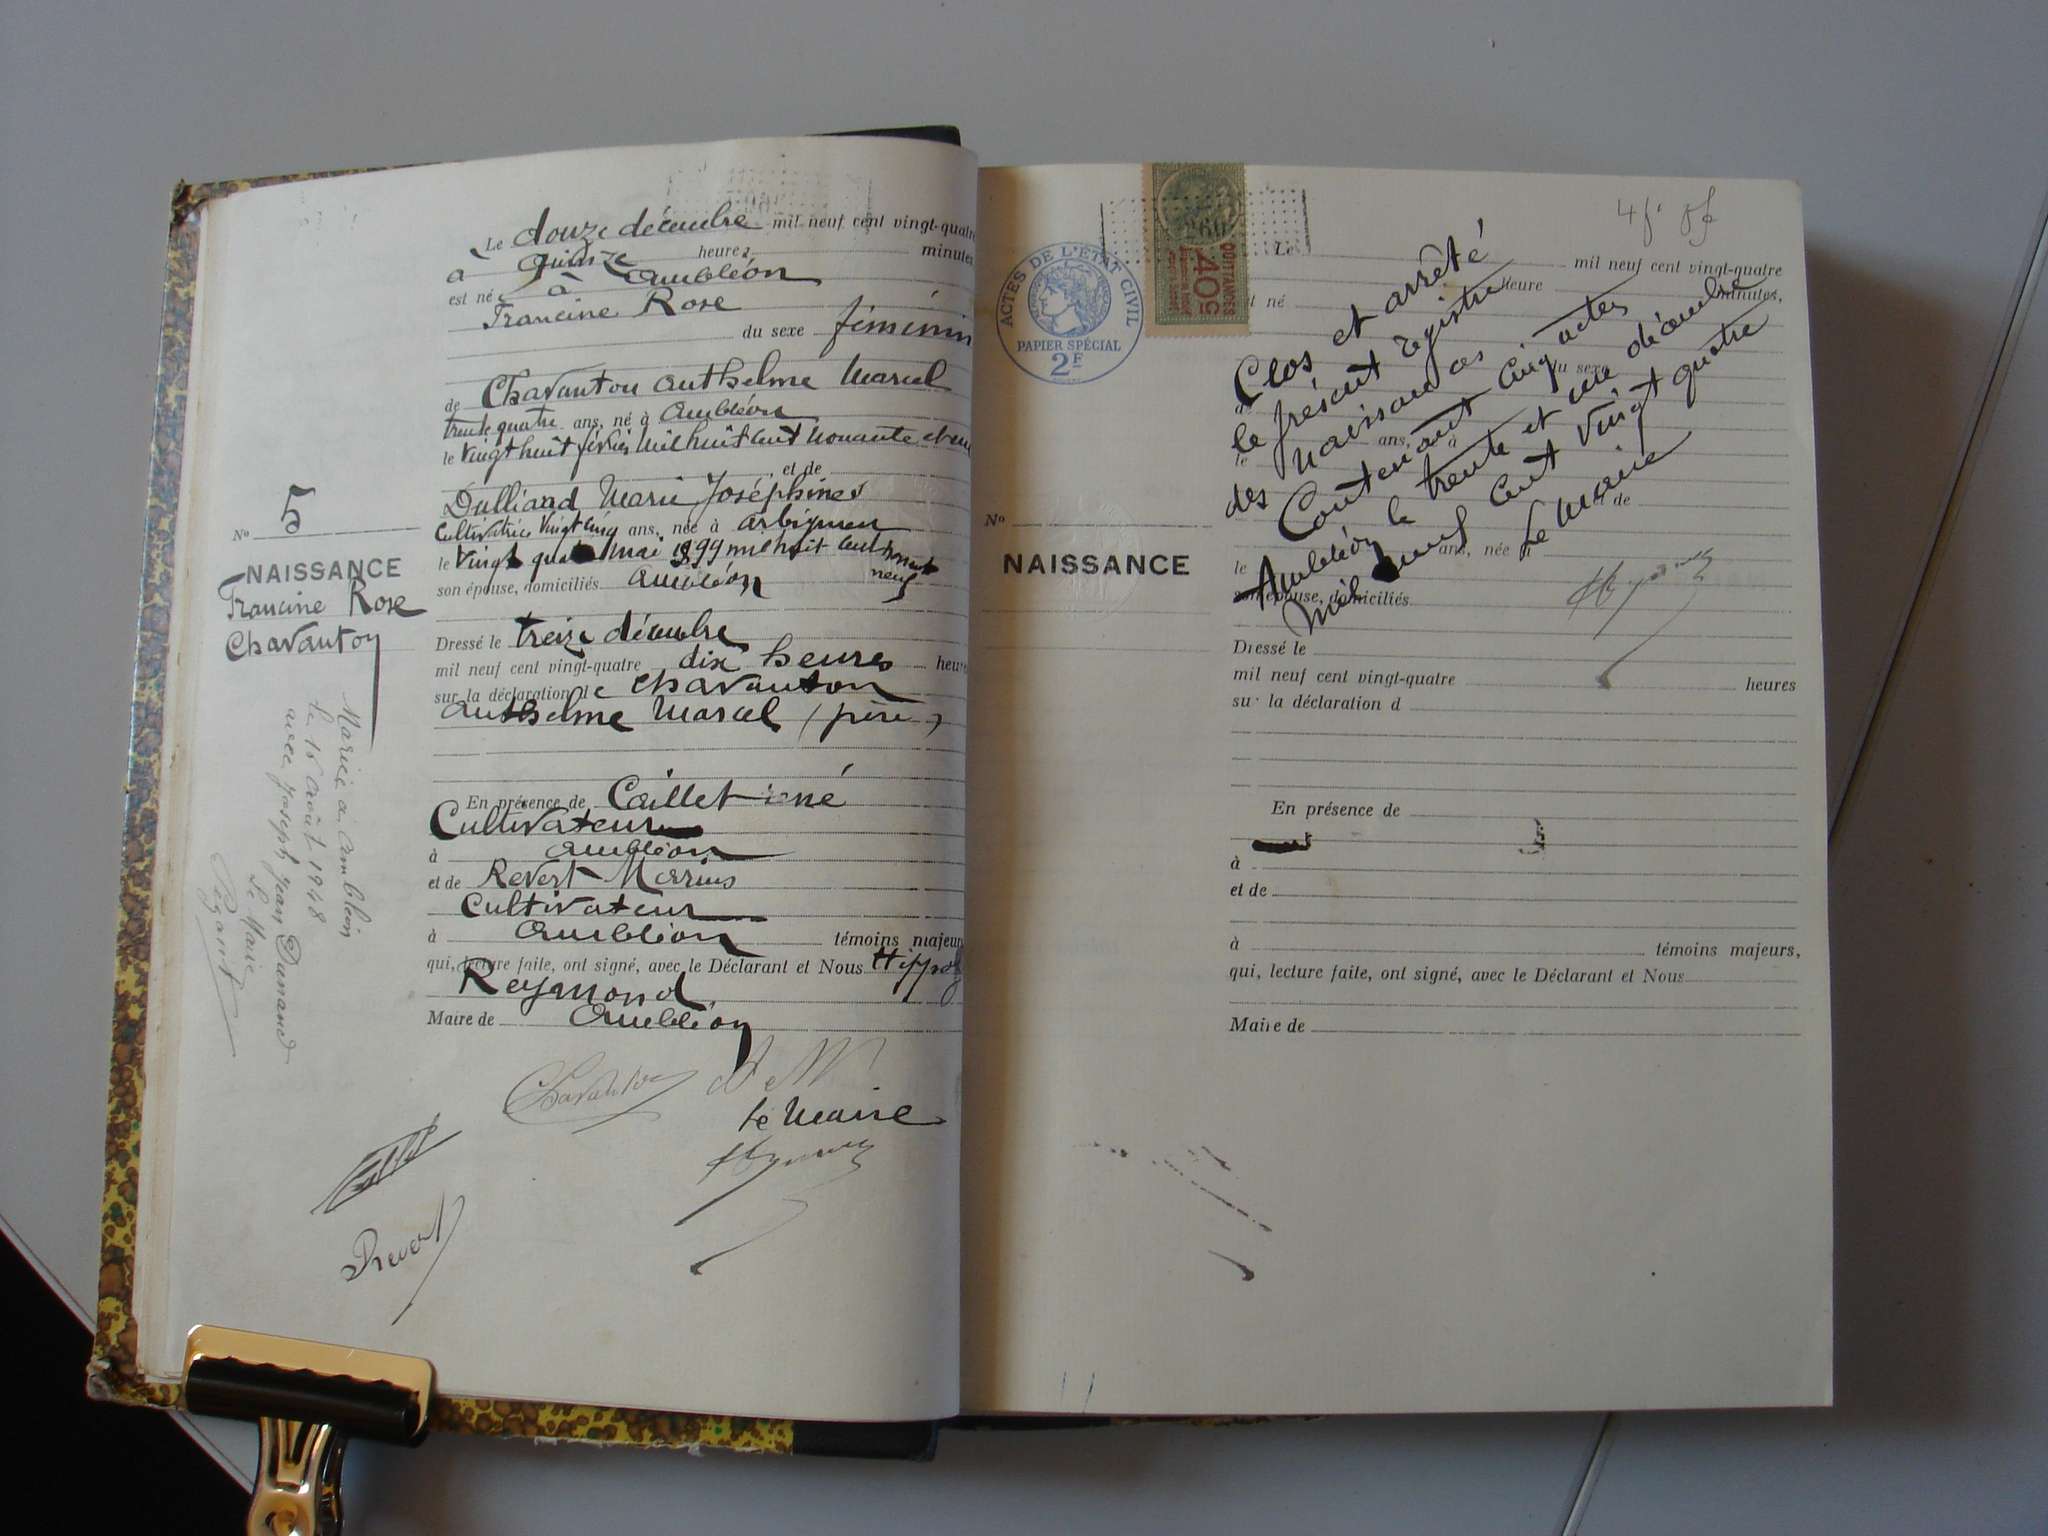 Le douze décembre mil neuf cent vingt-quatre
à quinze heures minutes
est né à Ambléon
Francine Rose
du sexe féminin
de Chavanton Anthelme Marcel
trente quatre ans, né à Ambléon
le vingt huit février mil huit cent nonante et un
, et de
Dulliand Marie Joséphine
Cultivatrice vingt cinq ans, née à Arbignieu
le vingt quatre mai 1899 mil huit cent nonante
neuf
son épouse, domiciliés Ambléon
Dressé le treize décembre
mil neuf cent vingt-quatre dix heures heures
sur la déclaration de Chavanton
Anthelme Marcel (père)
En présence de Caillet
Cultivateur
à Ambléon
et de Revert Marius
Cultivateur
à Ambléon témoins majeurs
qui, lecture faite, ont signé, avec le Déclarant et Nous Hippol
Reymond
Maire de Ambléon
Chavanton
Le Maire
Revert
No 5
NAISSANCE
Francine Rose
Chavanton
Mariée à Ambléon
le 16 Août 1948
avec Joseph Jean Dunand
Le Maire
ACTES DE L'ÉTAT CIVIL
PAPIER SPÉCIAL
2F
QUITTANCES
40c
Le mil neuf cent vingt-quatre
est né heure minutes,
du sexe
de
ans, né à
le
et de
ans, née à
le
son épouse, domiciliés
Clos et arrêté
le présent registre
des naissances
Contenant cinq actes
Ambléon le trente et un décembre
mil neuf cent vingt quatre
Le Maire
No
NAISSANCE
Dressé le
mil neuf cent vingt-quatre heures
sur la déclaration d
En présence de
à
et de
à témoins majeurs,
qui, lecture faite, ont signé, avec le Déclarant et Nous
Maire de